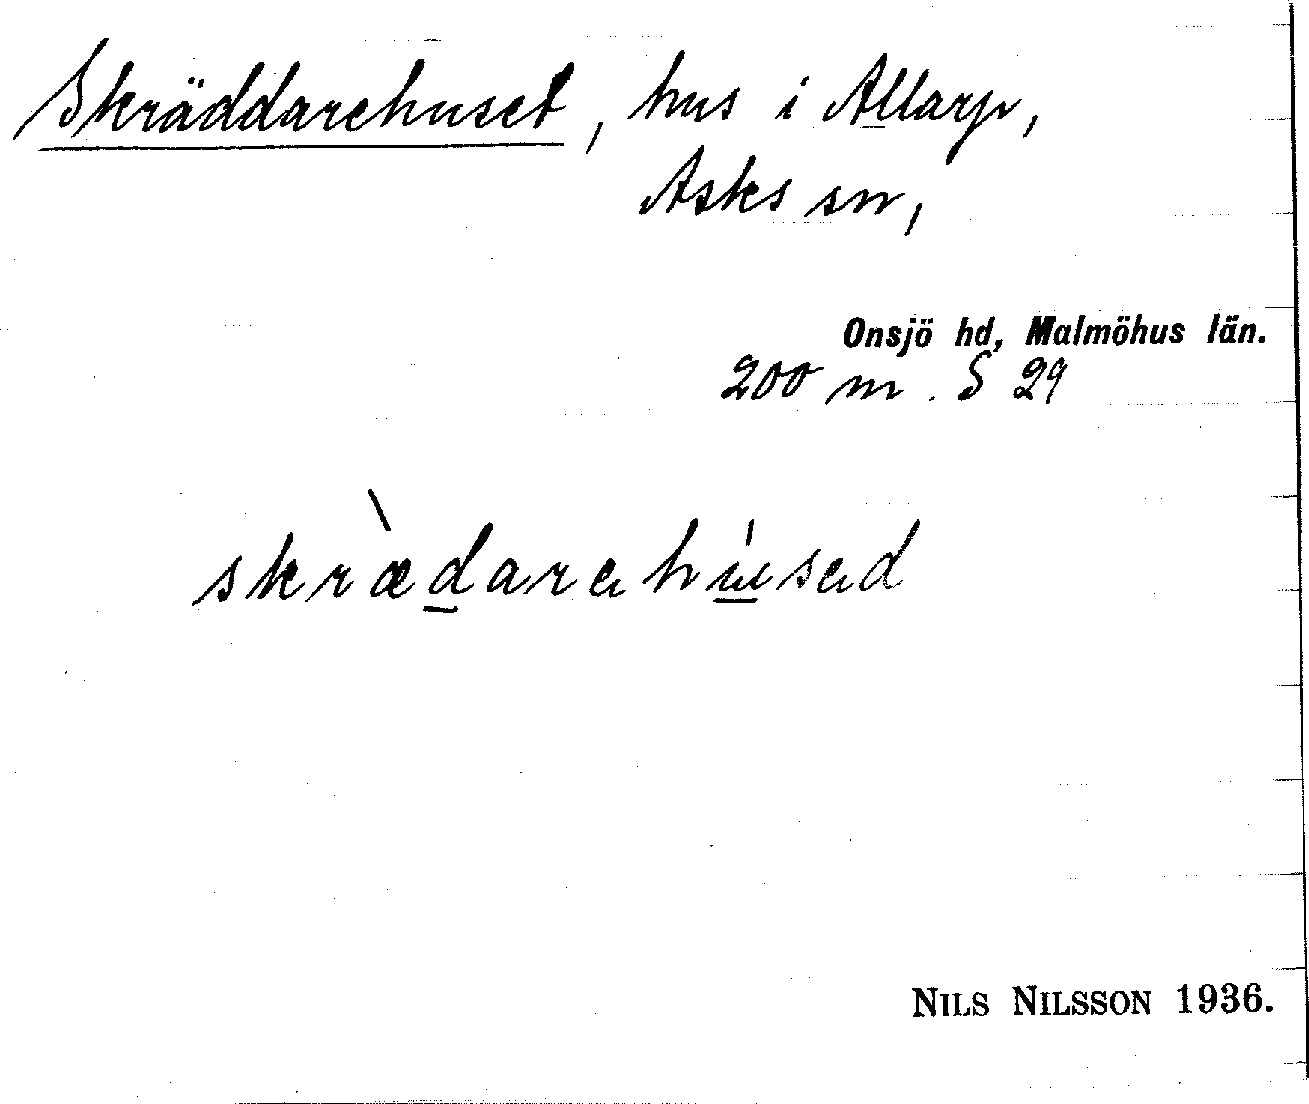 Skräddarehuset, hus i Allarp,
Asks sn,
Onsjö hd, Malmöhus län.
200 m. S 29
skræ̀darehúsed
NILS NILSSON 1936.